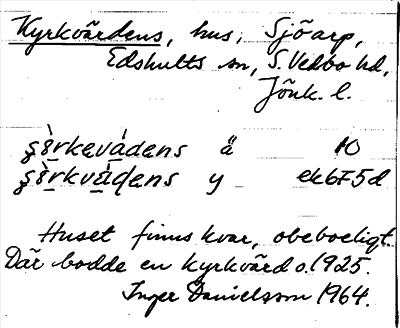 Kyrkvärdens, hus, Sjöarp,
Edshults sn, S. Vedbo hd,
Jönk. l.
ä 10
y ek6F5d
Huset finns kvar, obeboeligt
Där bodde en kyrkvärd o. 1925.
Inger Danielsson 1964.